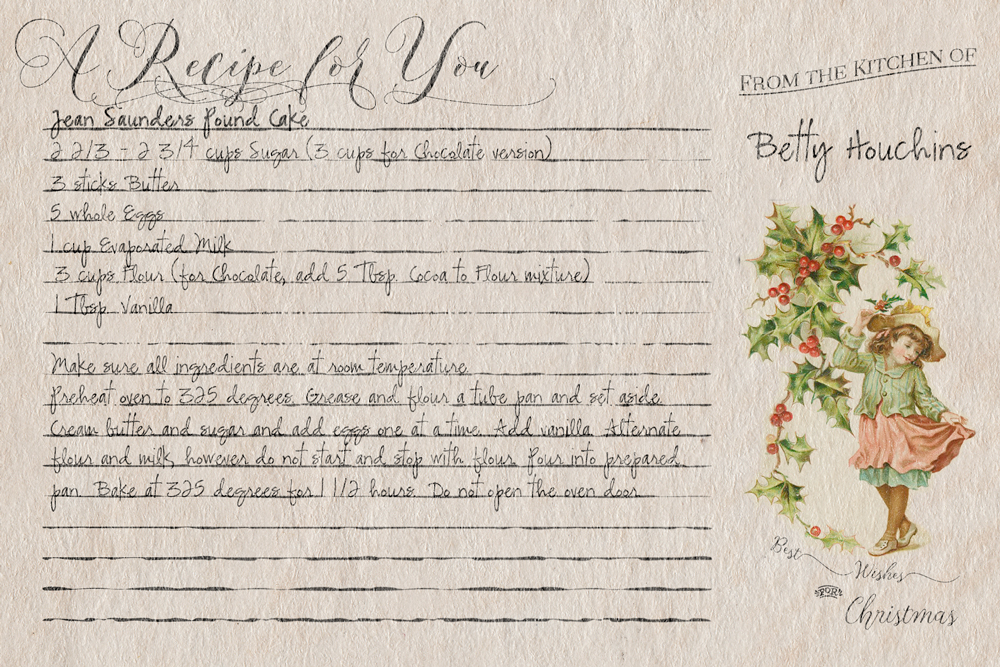 A Recipe for You
Jean Saunders Pound Cake
2 2/3 - 2 3/4 cups Sugar (3 cups for Chocolate version)
3 sticks Butter
5 whole Eggs
1 cup Evaporated Milk
3 cups Flour (for Chocolate, add 5 Tbsp. Cocoa to Flour mixture)
1 Tbsp. Vanilla
Make sure all ingredients are at room temperature.
Preheat oven to 325 degrees. Grease and flour a tube pan and set aside.
Cream butter and sugar and add eggs one at a time. Add vanilla. Alternate
flour and milk, however do not start and stop with flour. Pour into prepared
pan. Bake at 325 degrees for 1 1/2 hours. Do not open the oven door.
From the Kitchen of
Betty Houchins
Best
Wishes
FOR
Christmas